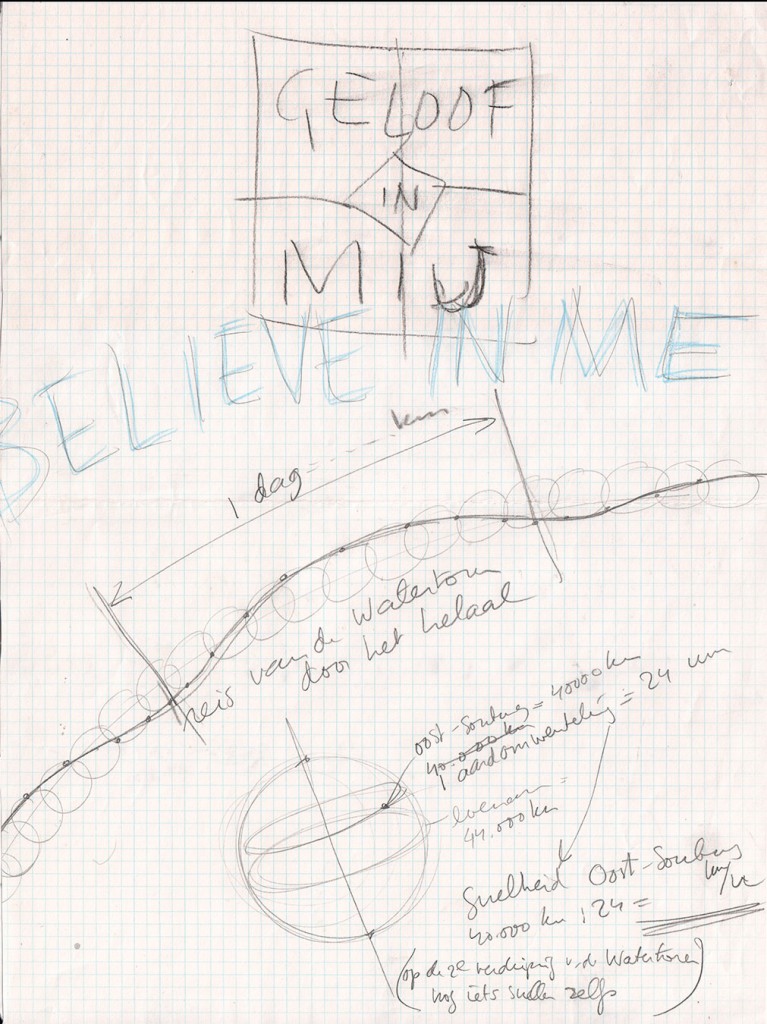 GELOOF
IN
MIJ
BELIEVE IN ME
1 dag ---- km
reis van de Watertoren
door het heelaal
oost-Souburg = 40000 km
40.000 km
1 aardomwenteling = 24 uur
evenaar =
44.000 km
Snelheid Oost-Souburg
40.000 km : 24 = km/u
(op de 2e verdieping v.d. Watertoren
nog iets sneller zelfs)